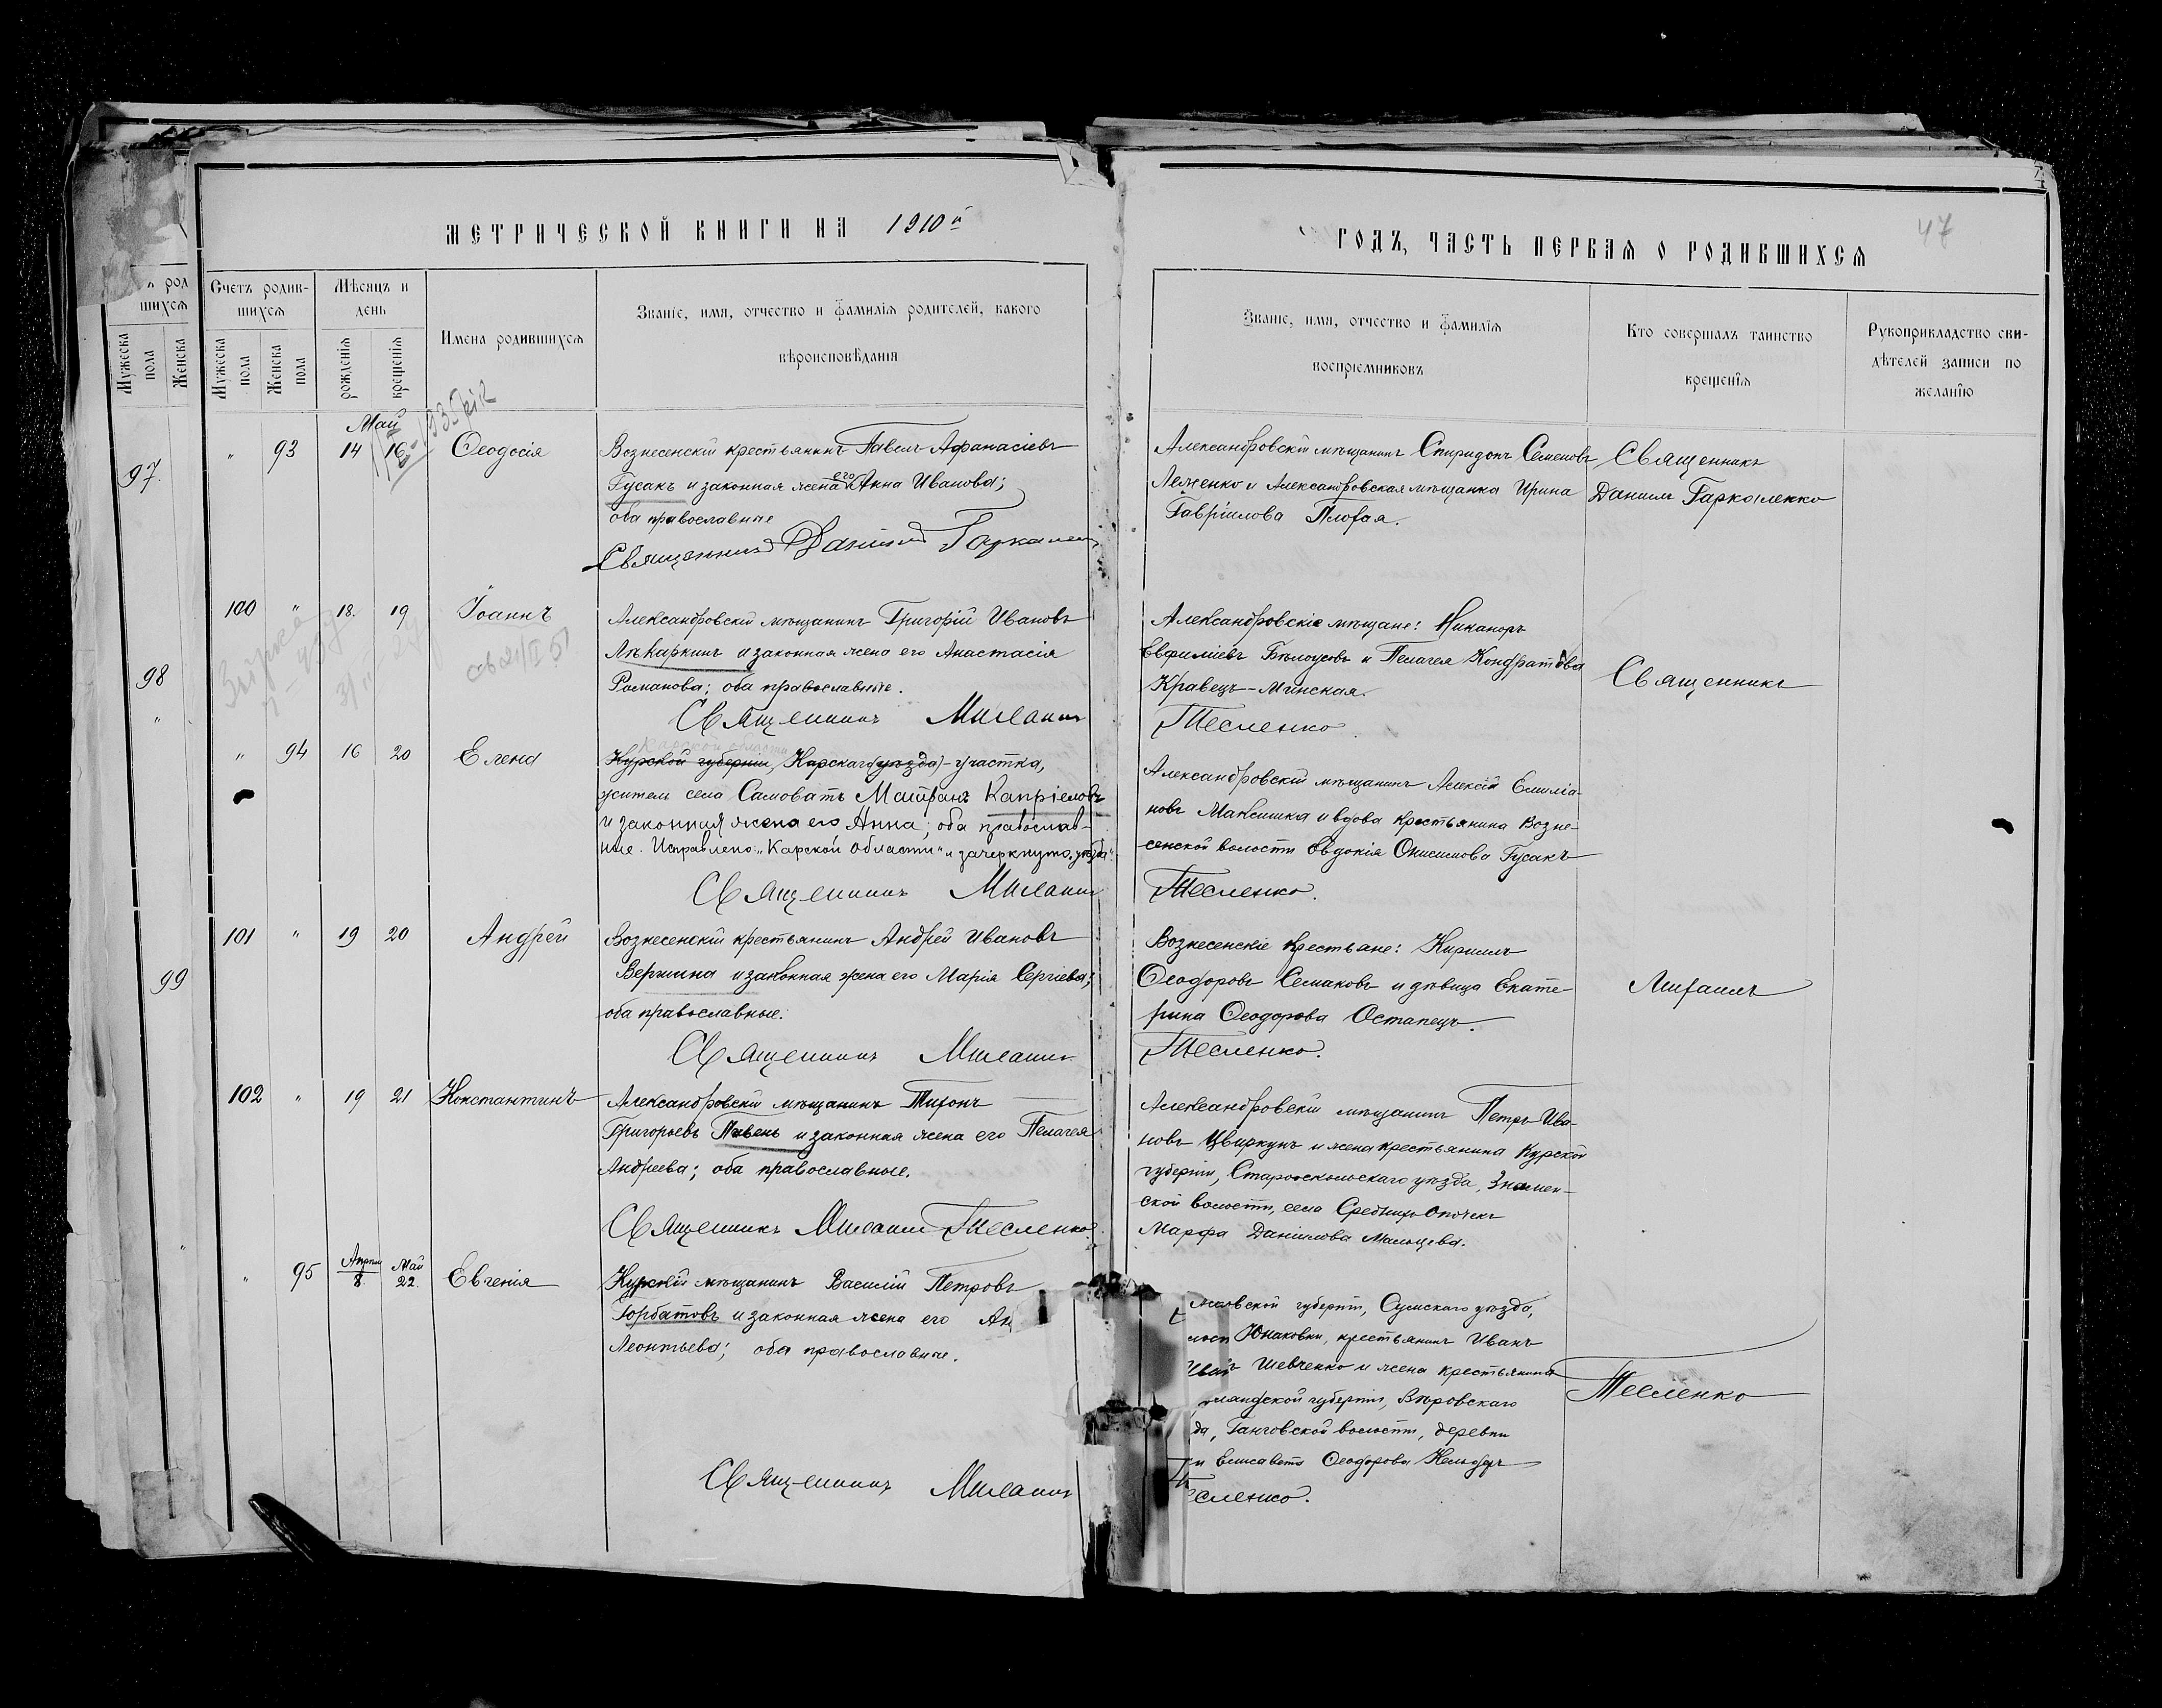 МЕТРИЧЕСКОЙ КНИГИ НА 1910й
ГОДЪ, ЧАСТЬ ПЕРВАЯ О РОДИВШИХСЯ
47
Счетъ родив-
шихся
Мужеска пола
Женска пола
Мѣсяцъ и
день
рожденія
крещенія
Имена родившихся
Званіе, имя, отчество и фамилія родителей, какого
вѣроисповѣданія
Званіе, имя, отчество и фамилія
воспріемниковъ
Кто совершалъ таинство
крещенія
Рукоприкладство сви-
дѣтелей записи по
желанію
шихся
Мужеска
пола
Женска
97.
98
"
99
Май
" 93 14 16 Ѳеодосія
Вознесенскій крестьянинъ Павелъ Афанасіевъ
Гусакъ и законная жена его Анна Иванова;
оба православные
Священникъ Даніилъ
Александровскій мѣщанинъ Спиридонъ Семеновъ
и Александровская мѣщанка Ирина
Гавріилова
Священникъ
Даніилъ
100 " 18. 19 Іоаннъ
Александровскій мѣщанинъ Григорій Ивановъ
и законная жена его Анастасія
Романова; оба православные.
Священникъ Михаилъ
Александровскіе мѣщане: Никаноръ
Евфиміевъ Бѣлоусовъ и Пелагея Кондратова
Кравецъ-Минская.
Тесленко
Священникъ
" 94 16 20 Елена
Карской области
Курской губерніи, Карскаго (уѣзда)-участка,
житель села Самоватъ Капріеловъ
и законная жена его Анна; оба православ-
ные. Исправлено: „Карской области" и зачеркнуто „уѣзда".
Священникъ Михаилъ
Александровскій мѣщанинъ Алексій Емиліа-
новъ Максишка и вдова крестьянина Возне-
сенской волости Евдокія Онисимова Гусакъ
Тесленко.
101 " 19 20 Андрей
Вознесенскій крестьянинъ Андрей Ивановъ
Вершина и законная жена его Марія Сергіева;
оба православные.
Священникъ Михаилъ
Вознесенскіе крестьане: Кириллъ
Ѳеодоровъ Семаковъ и дѣвица Екате-
рина Ѳеодорова Остапецъ.
Тесленко.
Михаилъ
102 " 19 21 Константинъ
Александровскій мѣщанинъ Тихонъ
Григорьевъ Пивень и законная жена его Пелагея
Андреева; оба православные.
Священникъ Михаилъ Тесленко.
Александровскій мѣщанинъ Петръ Ива-
новъ Цвиркунъ и жена крестьянина Курской
губерніи, Старооскольскаго уѣзда, Знамен-
ской волости, села Среднихъ Опочекъ
Марфа Даніилова Мальцева.
" 95 Апрѣль 8. Май 22. Евгенія
Курскій мѣщанинъ Василій Петровъ
Горбатовъ и законная жена его Ан
Леонтьева; оба православные.
Священникъ Михаилъ
ьковской губерніи, Сумскаго уѣзда,
Юнаковки, крестьянинъ Иванъ
Шевченко и жена крестьянина
ляндской губерніи, Вѣровскаго
да, Ганговской волости, деревни
и Елисавета Ѳеодорова
есленко.
Тесленко